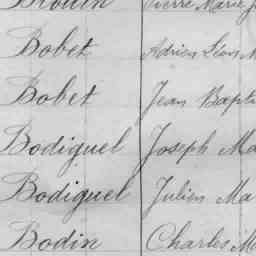 Pierre Marie J
Bobet Adrien Léon M
Bobet Jean Bapti
Bodiguel Joseph Ma
Bodiguel Julien Ma
Bodin Charles M